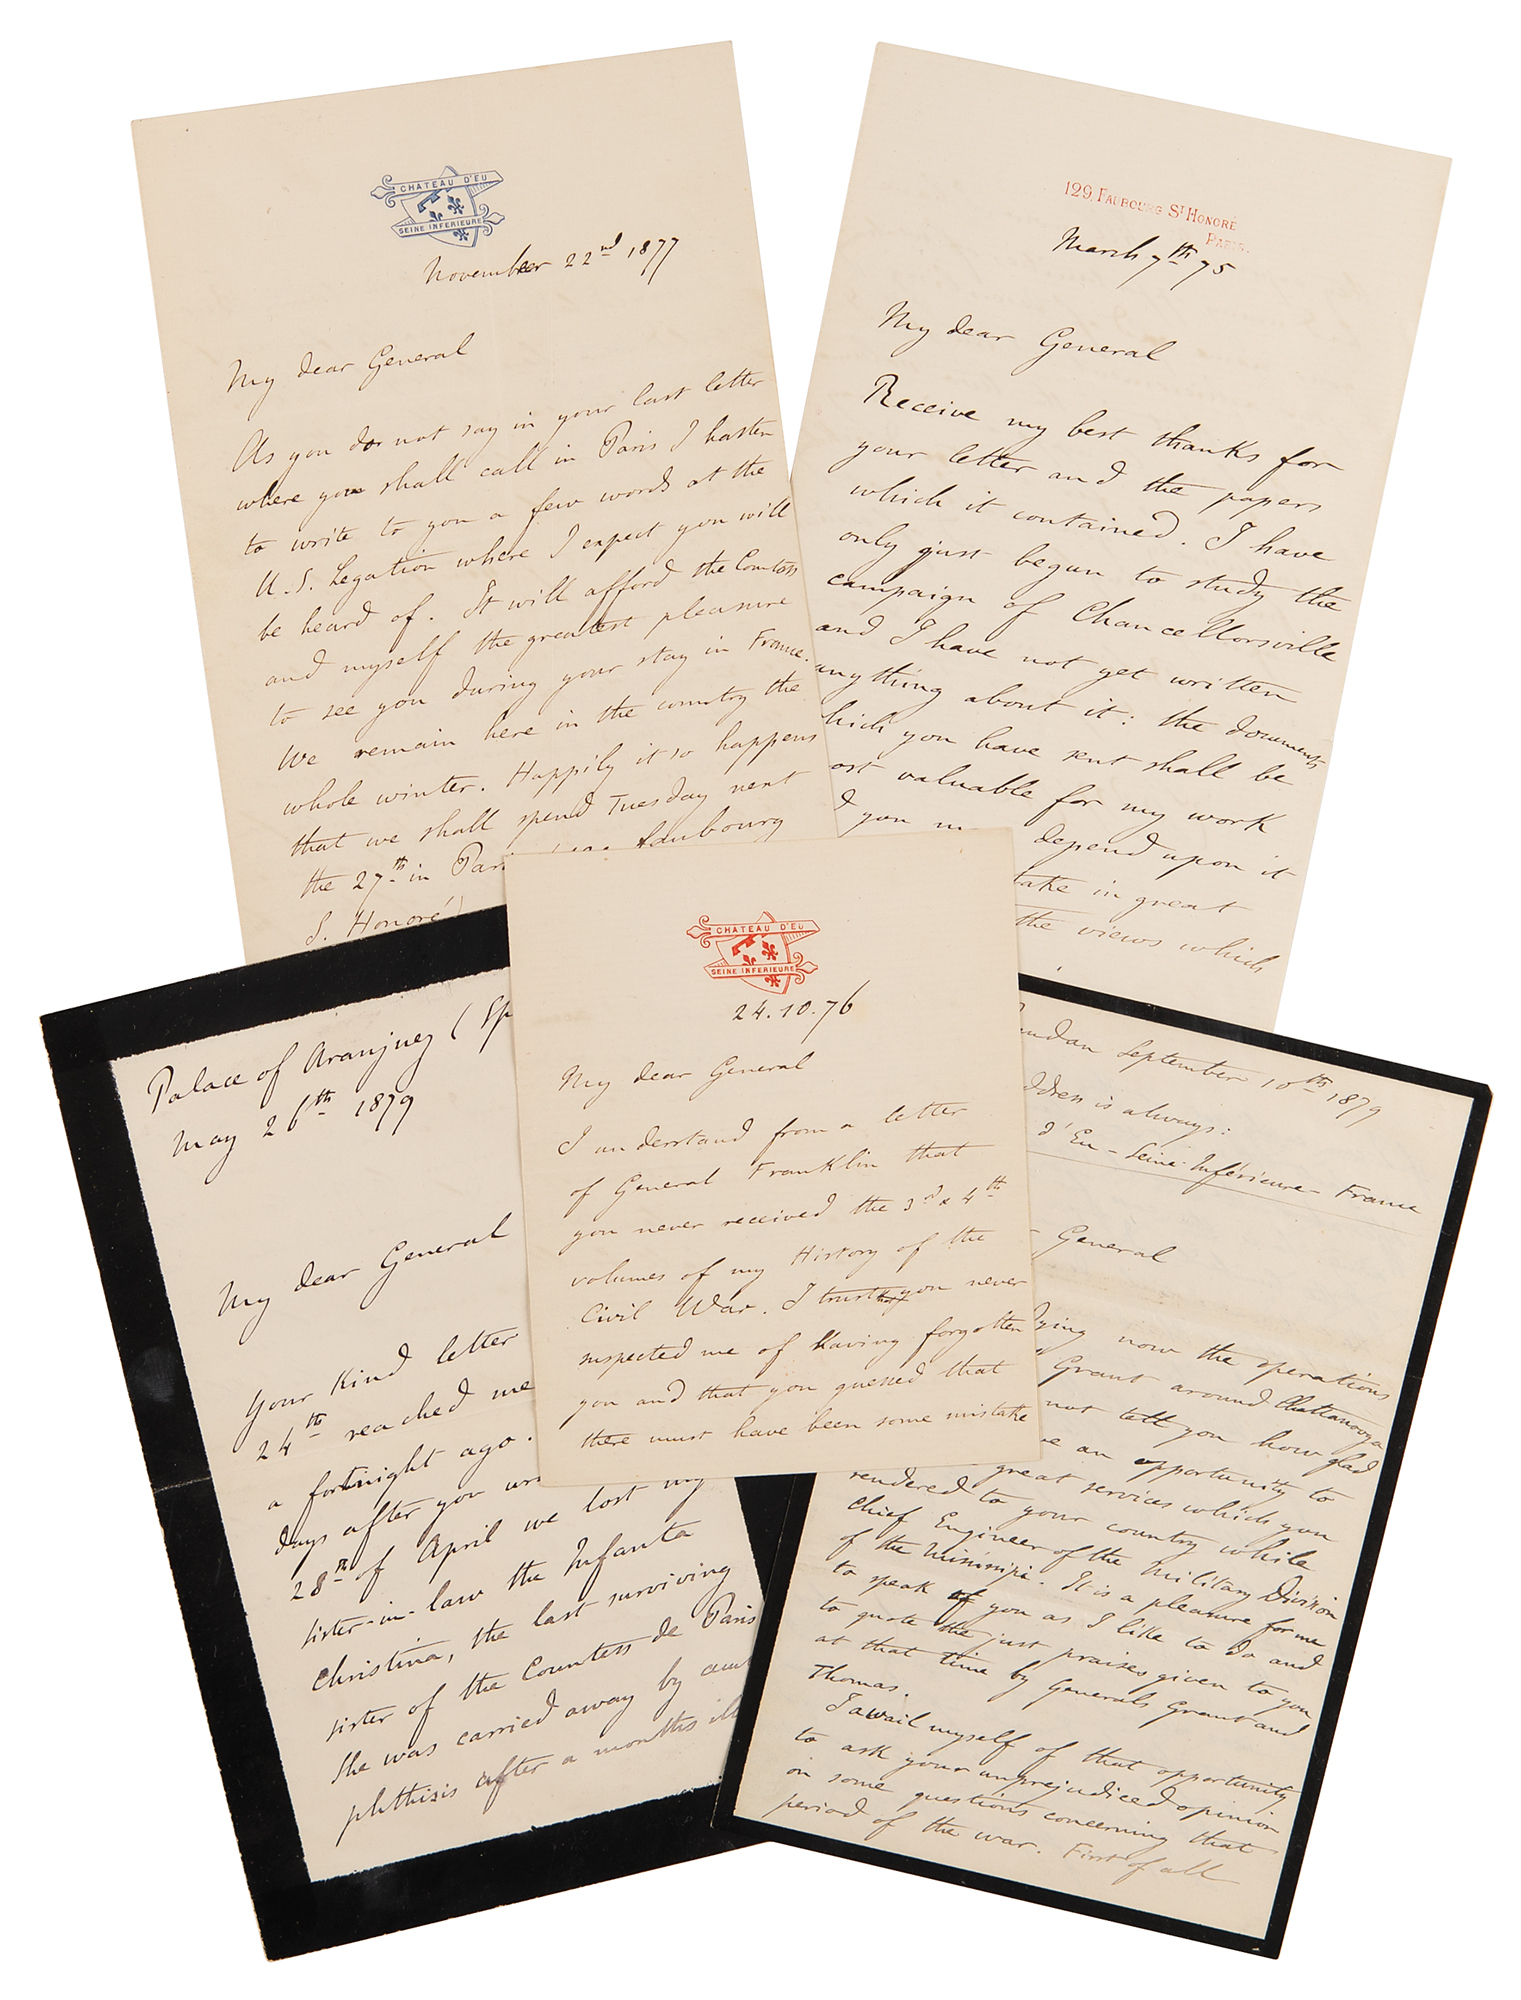 CHÂTEAU D'EU
SEINE INFERIEURE
November 22nd 1877
My dear General
As you do not say in your last letter
where you shall call in Paris I hasten
to write to you a few words at the
U.S. Legation where I expect you will
be heard of. It will afford the Comtess
and myself the greatest pleasure
to see you during your stay in France.
We remain here in the country the
whole winter. Happily it so happens
that we shall spend Tuesday next
the 27th in Par faubourg
S. Honoré)
129, FAUBOURG ST HONORÉ
PARIS.
March 7th 75
My dear General
Receive my best thanks for
your letter and the papers
which it contained. I have
only just begun to study the
campaign of Chancellorsville
and I have not yet written
anything about it: the documents
hich you have sent shall be
ost valuable for my work
d you depend upon it
take in great
the views which
CHÂTEAU D'EU
SEINE INFERIEURE
24.10.76
My dear General
I understand from a letter
of General Franklin that
you never received the 3d & 4th
volumes of my History of the
Civil War. I trust you never
suspected me of having forgotten
you and that you guessed that
there must have been some mistake
Palace of Aranjuez (Sp
May 26th 1879
My dear General
Your kind letter
24th reached me
a fortnight ago.
days after you wr
28th of April we lost my
sister-in-law the Infanta
Christina, the last surviving
sister of the Countess de Paris
She was carried away by
phthisis after a months ill
ndan September 10th 1879
ddress is always:
d'Eu - Seine-Inférieure - France
General
ying now the operations
Grant around Chattanooga
not tell you how glad
ve an opportunity to
great services which you
rendered to your country while
Chief Engineer of the Military Division
of the Mississipi. It is a pleasure for me
to speak of you as I like to do and
to quote the just praises given to you
at that time by Generals Grant and
Thomas.
I avail myself of that opportunity
to ask your unprejudiced opinion
on some questions concerning that
period of the war. First of all